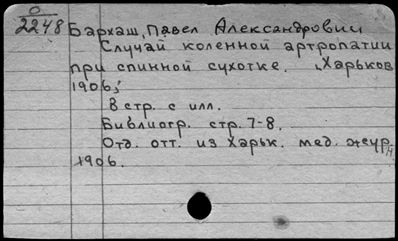 О
2248 Бархаш, Павел Александрович
Случай коленной артропатии
при спинной сухотке. Харьков
1906,
8 стр. с илл.
Библиогр. стр. 7-8.
Отд. отт. из Харьк. мед. журн
1906.